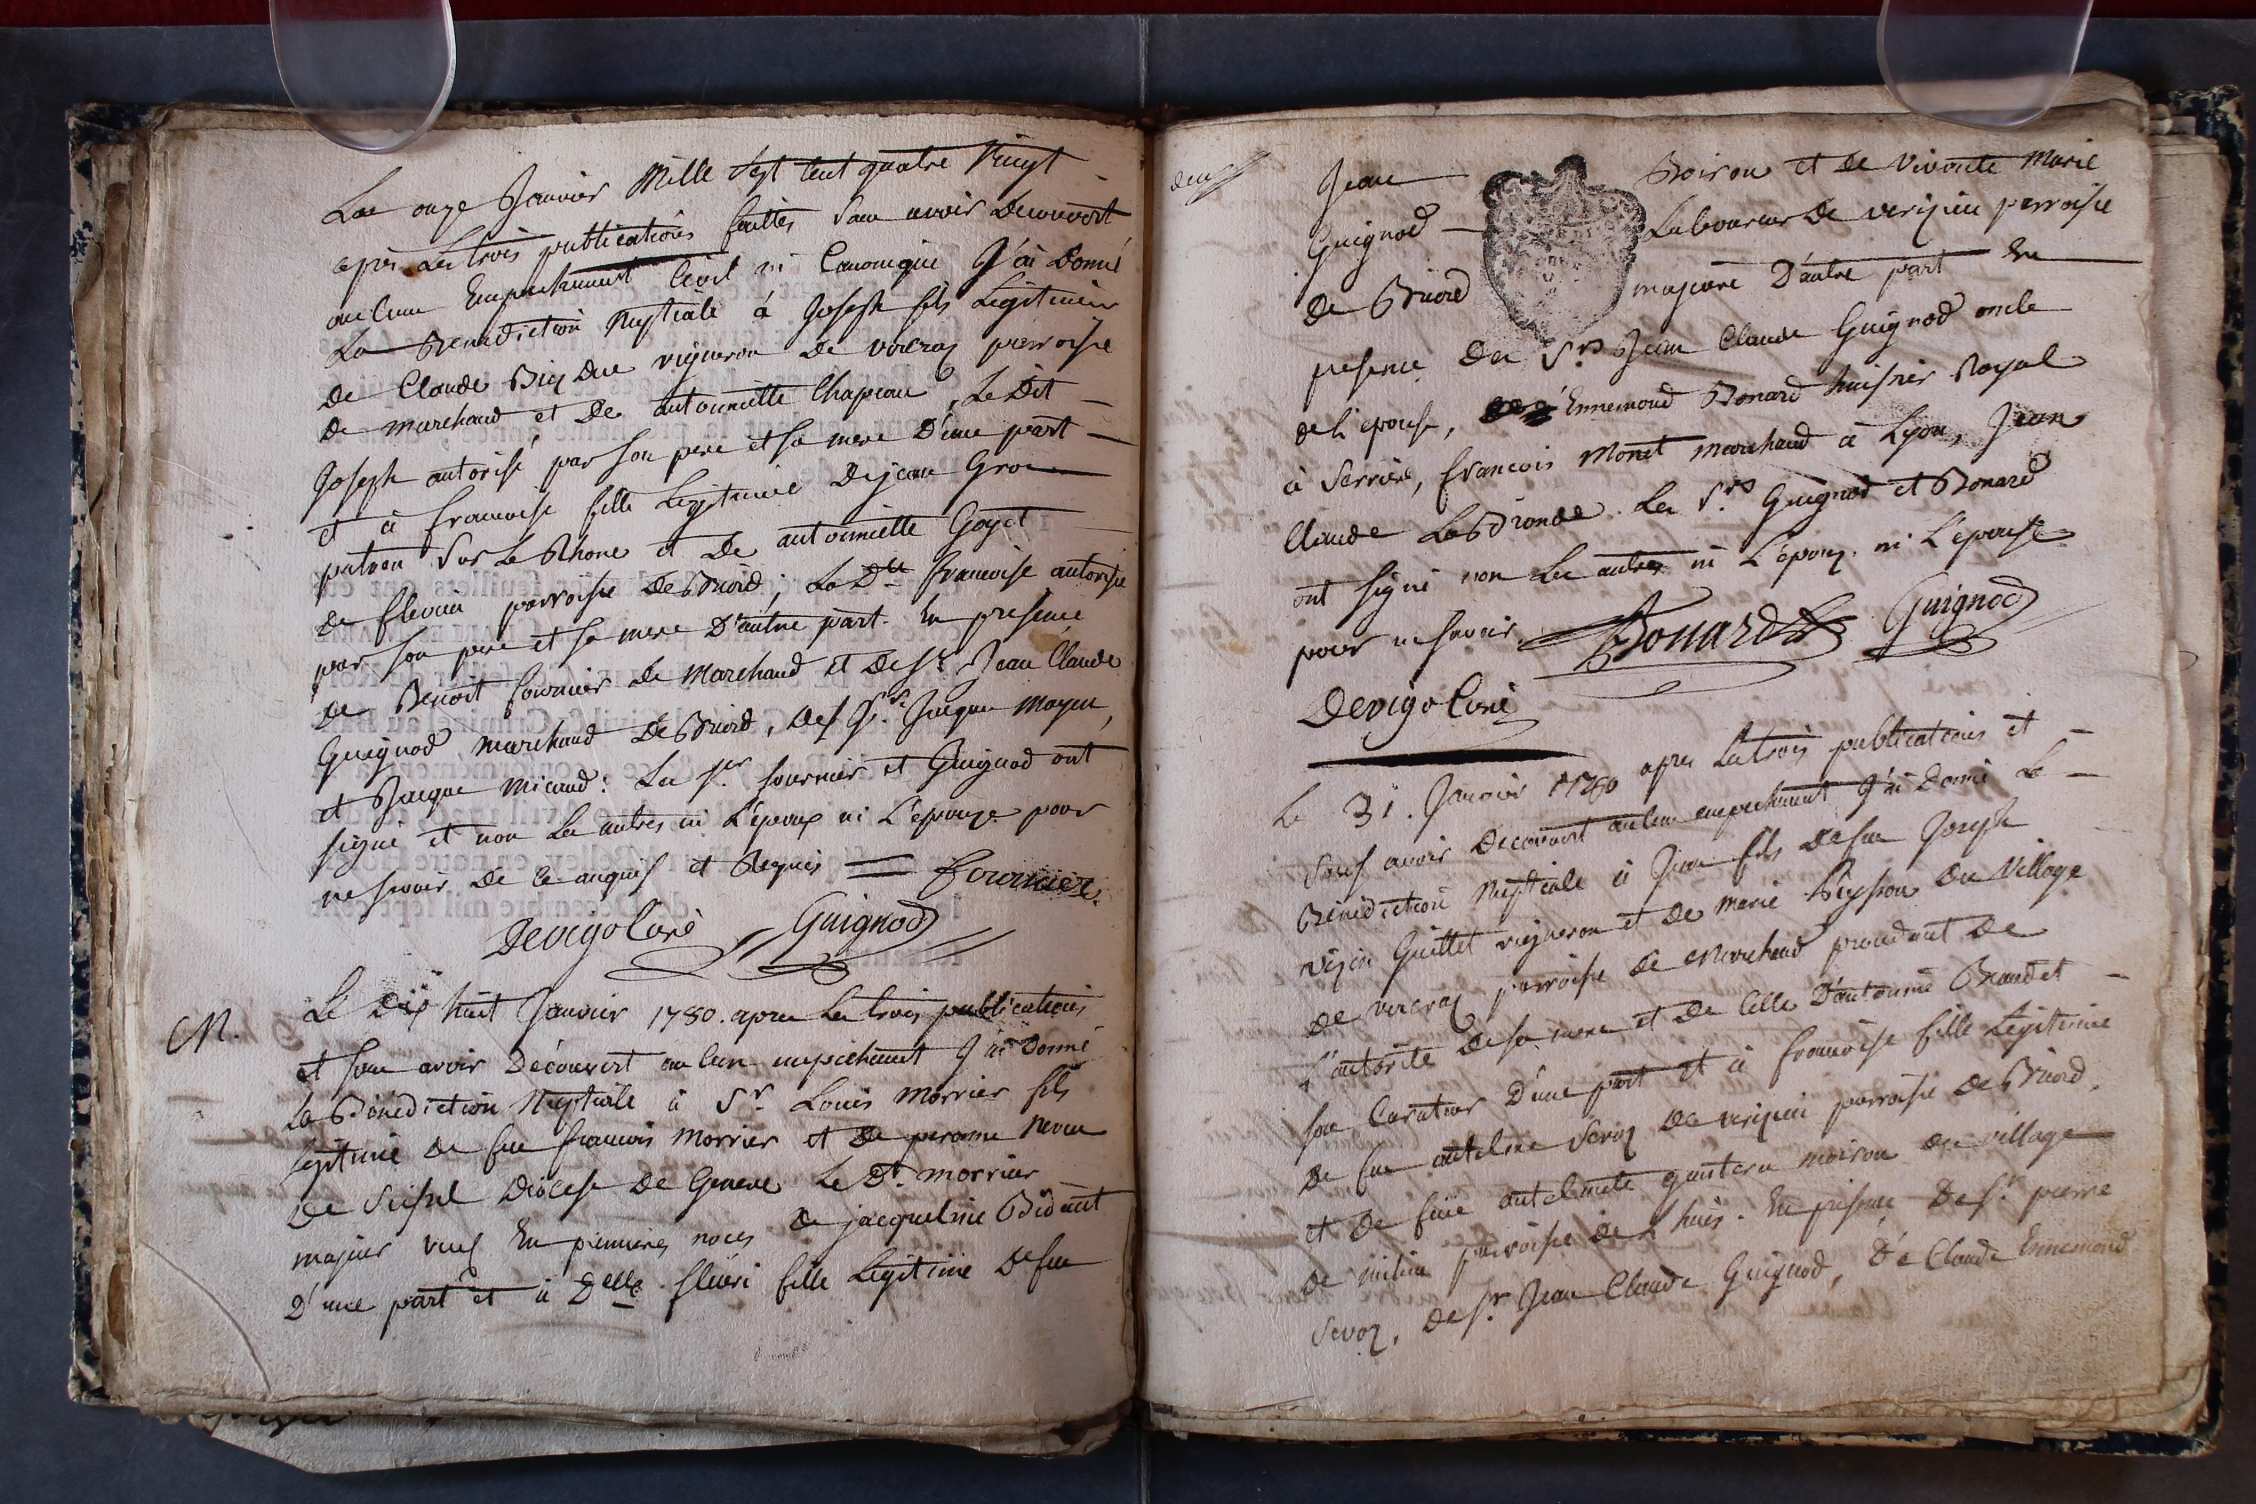 Lan onze Janvier Mille Sept cent quatre Vingt
apres Les trois publications faittes Sans avoir Decouvert
aucun Empechement Civil ni Canonique J'ai Donné
La Benediction Nuptiale à Joseph fils Legitime
De Claude vigneron De parroisse
De marchand et De antoinette Chapeau, Le Dit
Joseph autorisé par Son pere et Sa mere D'une part
et à francoise fille Legitime De jean Gros
patron Sur Le Rhone et De antoinette Goyet
De flevieu parroisse De Briord; La Dlle francoise autorisée
par Son pere et Sa mere D'autre part. En presence
De Benoit fournier De marchand et De Sr Jean Claude
Guignod marchand De Briord, Des Jacque moyen,
et Jacque micaud: Les Sr fournier et Guignod ont
signé et non Les autres ni L'epoux ni L'epouze pour
ne Savoir De ce enquis et Requis = fournier.
Devigo Curé Guignod
M. Le Dix huit Janvier 1780. apres Les trois publications
et Sans avoir Découvert aucun empechement J'ai Donné
La Bénédiction Nuptiale à Sr. Louis Morrier fils
legitime De feu francois Morrier et De
De Seissel Diocese De Geneve Le Dt. morrier
majeur veuf En premieres noces De jacqueline Bidaut
D'une part et à Delle. fleuri fille Legitime De feu
Jean Boiron et De Marie
Guignod Laboureur De verizieu parroisse
De Briord majeure D'autre part En
presence Des Srs Jean Claude Guignod oncle
De L'epouse, Ennemond Bonard huissier Royal
à Serriere, francois Monet marchand à Lyon, Jean
Claude La Bronde. Les Srs Guignod et Bonard
ont signé non Les autres ni L'epoux ni L'epouse
pour ne savoir. Bonard Guignod
Devigo Curé
Le 31. Janvier 1780 apres Les trois publications et
Sans avoir Decouvert aucun empechement J'ai Donné La
Bénédiction Nuptiale à Jean fils De feu Joseph
Guillet vigneron et De Marie du Village
De parroisse De Marchand procedant De
L'autorité De Sa mere et De Celle D'antoine
Son Curateur D'une part et à francoise fille Legitime
De feu antelme De verizieu parroisse De Briord,
et De fuë moiron du village
De parroisse De En presence De Sr pierre
De Sr Jean Claude Guignod, De Claude Ennemond